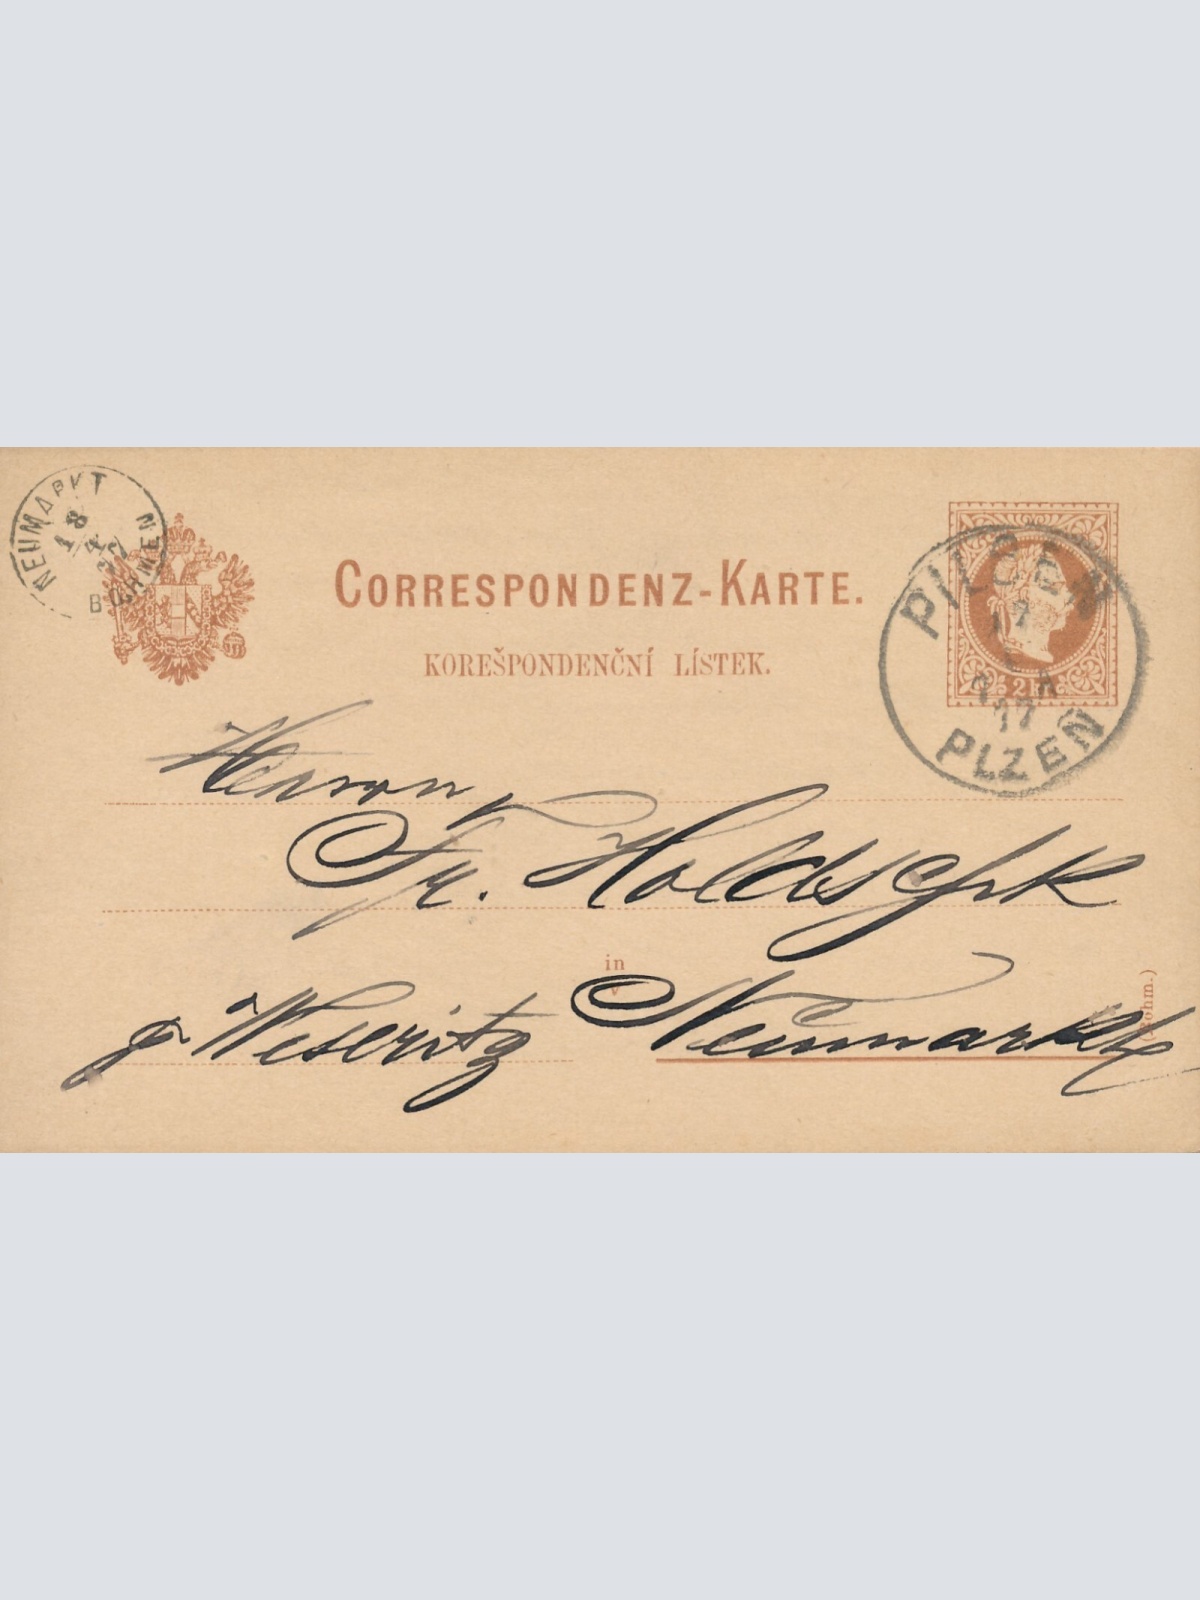 NEUMARKT
18
4
77
BÖHMEN
CORRESPONDENZ-KARTE.
KOREŠPONDENČNÍ LÍSTEK.
PILSEN
17
4 A
77
PLZEŇ
2 Kr.
Herrn
Fr. Holdschk
in
v
Neumarkt
p. Weseritz
(Böhm.)